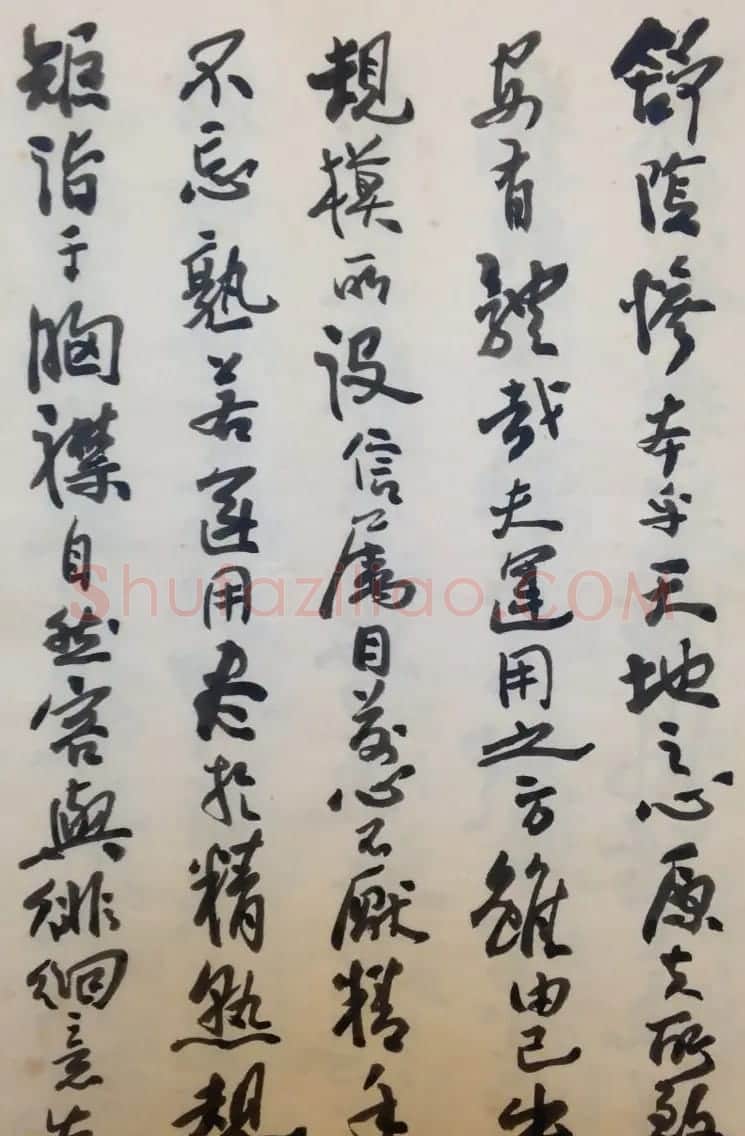 舒陰慘本乎天地之心原夫所致
安有體哉夫運用之方雖由己出
規模所設信屬目前心不厭精手
不忘熟若運用尽於精熟規
矩諳于胸襟自然容與徘徊意先
Shufaziliao.COM